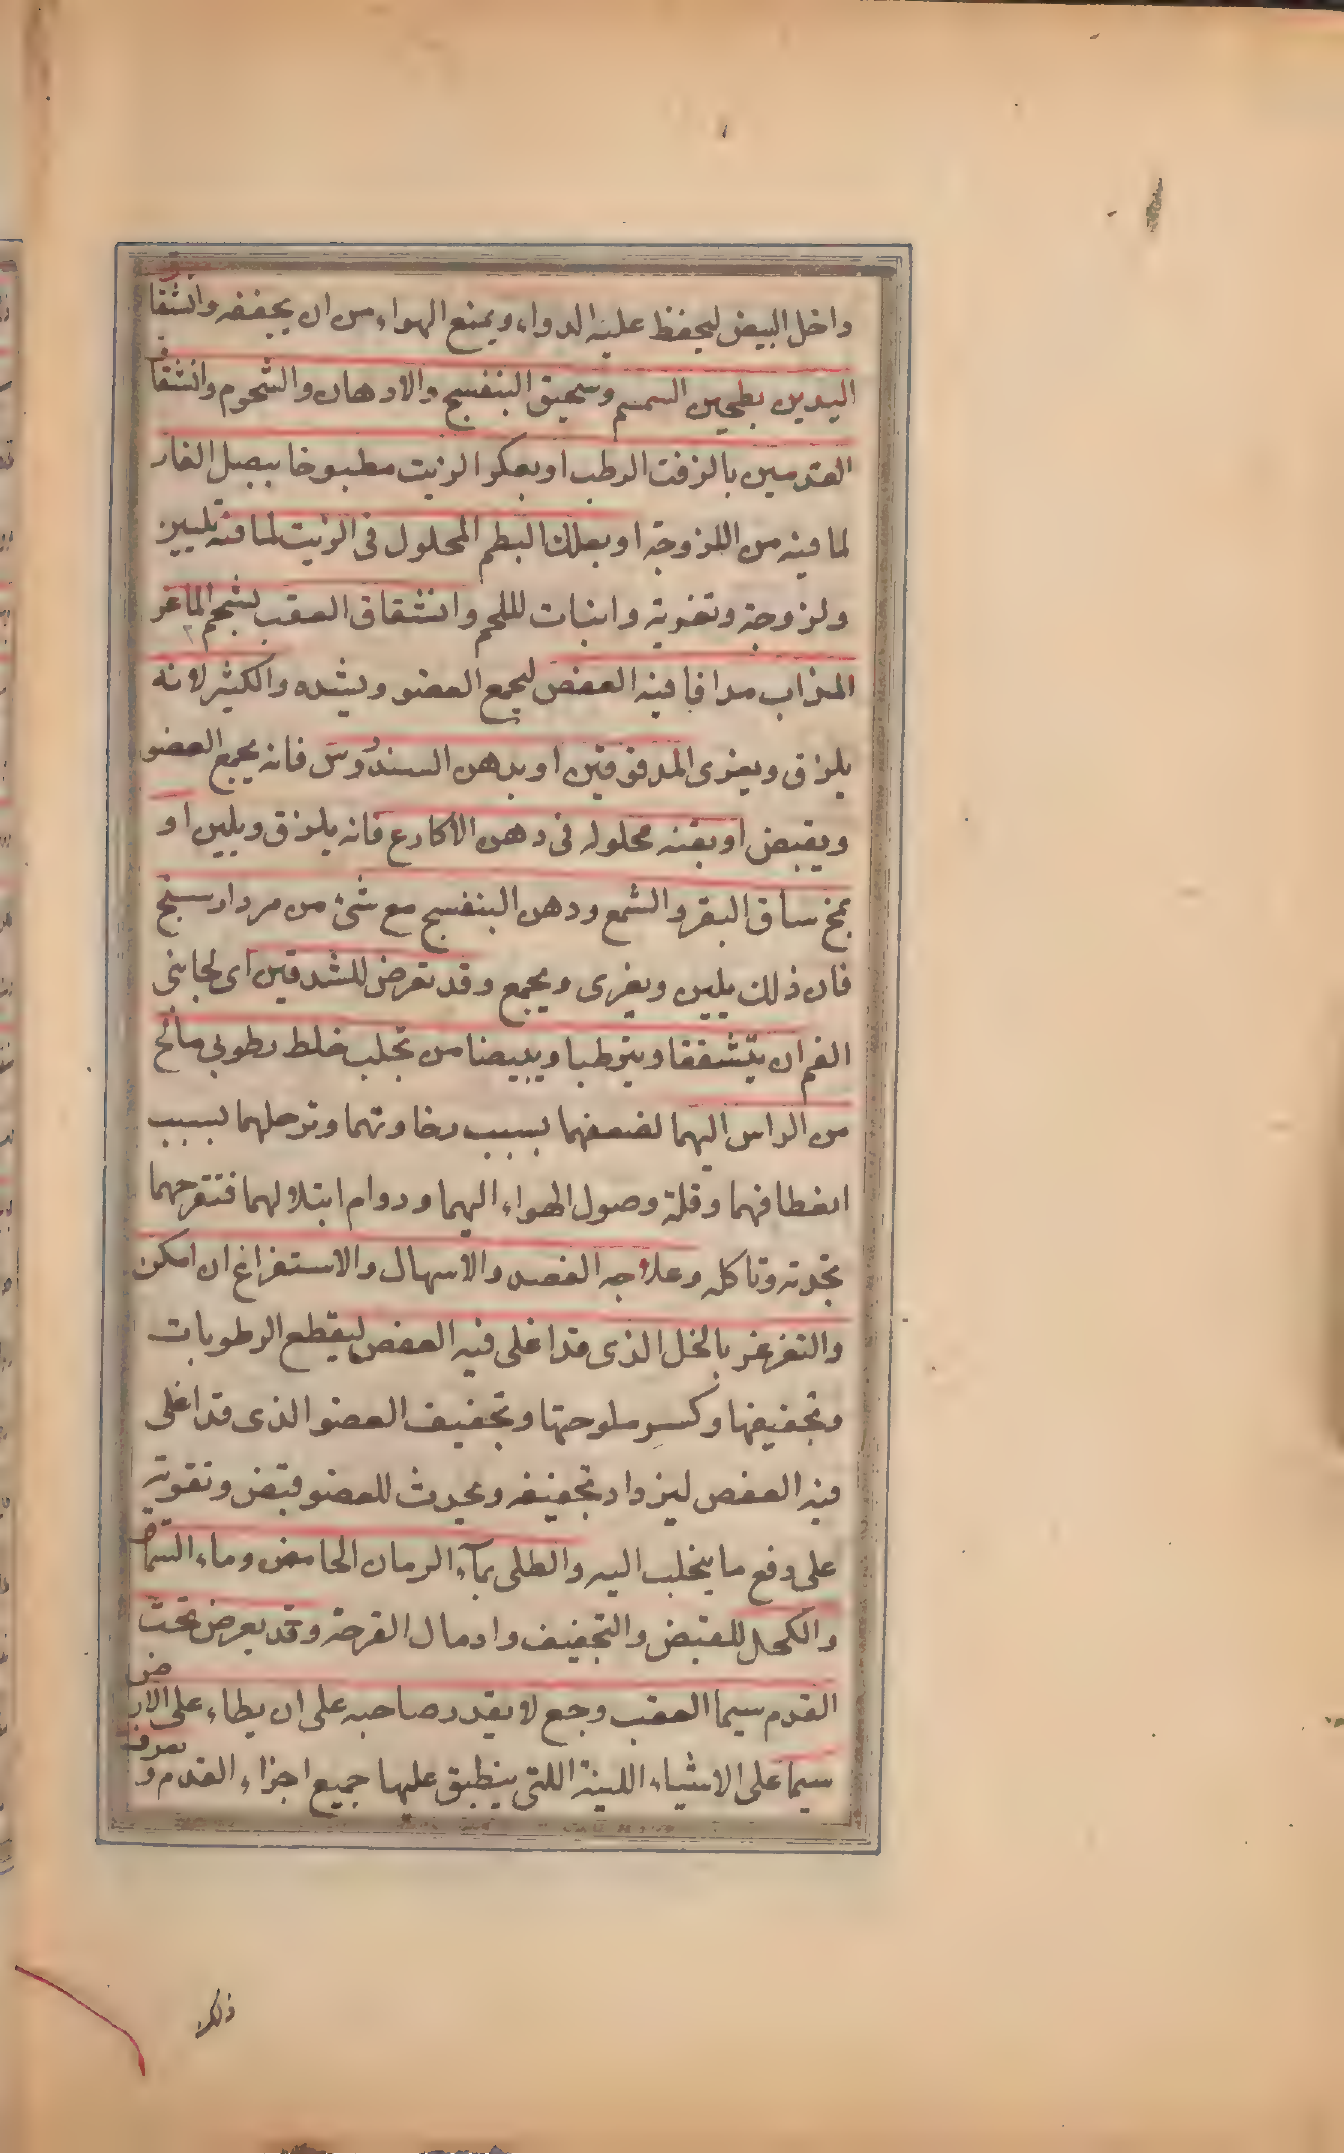 داخل البيض ليحفظ عليه الدواء ويمنع الهواء من ان يجففه وانشقاق
اليدين بطحين السمسم وسحيق البنفسج والادهان والشحوم وانشقاق
القدمين بالزفت الرطب او بعكر الزيت مطبوخا ببصل الفار
لما فيه من اللزوجة او بعلك البطم المحلول في الزيت لما فيه تليين
ولزوجة وتغرية وانبات للحم وانشقاق العقب بشحم الماعز
المذاب مدافا فيه العفص ليجمع العضو ويشده والكثير لانه
يلزق ويغرى المدقوقين او بدهن السندروس فانه يجمع العضو
ويقبض او بقنه محلوله في دهن الاكارع فانه يلزق ويلين او
بمخ ساق البقر والشمع ودهن البنفسج مع شئ من مرداد سنج
فان ذلك يلين ويغرى ويجمع وقد تعرض للشدقين اى لجانبى
الفم ان يتشققا ويترطبا ويبيضا من تجلب خلط رطوبى مالح
من الراس اليهما لضعفهما بسبب رخاوتهما وترهلهما بسبب
انعطافهما وقلة وصول الهواء اليهما ودوام ابتلالهما فتتقرحهما
بحدته وتاكله وعلاجه الفصد والاسهال والاستفراغ ان امكن
والتغرغر بالخل الذى قد اغلى فيه العفص ليقطع الرطوبات
وتجفيفها وكسر ملوحتها وتجفيف العضو الذى قد اغلى
فيه العفص ليزداد تجفيفه ويحدث للعضو قبض وتقوية
على دفع ما يتجلب اليه والطلى بمآء الرمان الحامض وماء السماق
والكحل للقبض والتجفيف وادمال القرحة وقد يعرض تحت
القدم سيما العقب وجع لا يقدر صاحبه على ان يطاء على الارض
سيما على الاشياء اللينة اللتى ينطبق عليها جميع اجزاء القدم ويعرف
ذلك